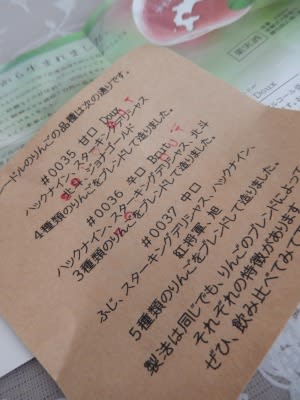 ードルのりんごの品種は次の通りです。
#0035 甘口 Doux
ハックナイン、スターキングデリシャス
ジョナゴールド
4種類のりんごをブレンドして造りました。
#0036 辛口 Brut
ハックナイン、スターキングデリシャス、北斗
3種類のりんごをブレンドして造りました。
#0037 中口
ふじ、スターキングデリシャス、ハックナイン、
紅将軍 旭
5種類のりんごをブレンドして造りました。
製法は同じでも、りんごのブレンドによって
それぞれの特徴があります
ぜひ、飲み比べてみて
Doux